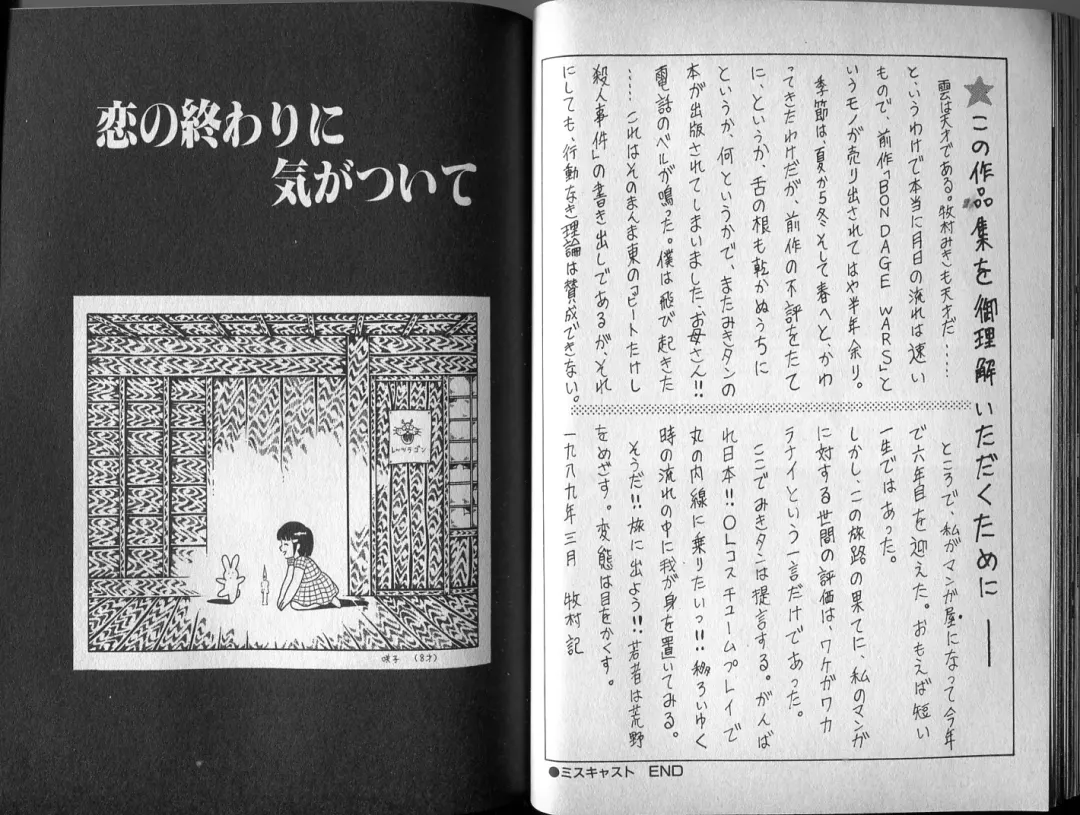 ★この作品集を御理解いただくために──
雲は天才である。牧村みきも天才だ……
と、いうわけで本当に月日の流れは速い
もので、前作「BONDAGE WARS」と
いうモノが売り出されてはや半年余り。
季節は、夏から冬そして春へと、かわ
ってきたわけだが、前作の不評をたて
に、というか、舌の根も乾かぬうちに
というか、何というかで、またみきタンの
本が出版されてしまいました、お母さん!!
電話のベルが鳴った。僕は飛び起きた
……これはそのまんま東の「ビートたけし
殺人事件」の書き出しであるが、それ
にしても、行動なき理論は賛成できない。
ところで、私がマンガ屋になって今年
で六年目を迎えた。おもえば短い
一生ではあった。
しかし、この旅路の果てに、私のマンガ
に対する世間の評価は、ワケがワカ
ラナイという一言だけであった。
ここでみきタンは提言する。がんば
れ日本!!OLコスチュームプレイで
丸の内線に乗りたいっ!!移ろいゆく
時の流れの中に我が身を置いてみる。
そうだ!!旅に出よう!!若者は荒野
をめざす。変態は目をかくす。
一九八九年三月 牧村記
●ミスキャスト END
恋の終わりに
気がついて
レーツラゴン
咲子 (8才)